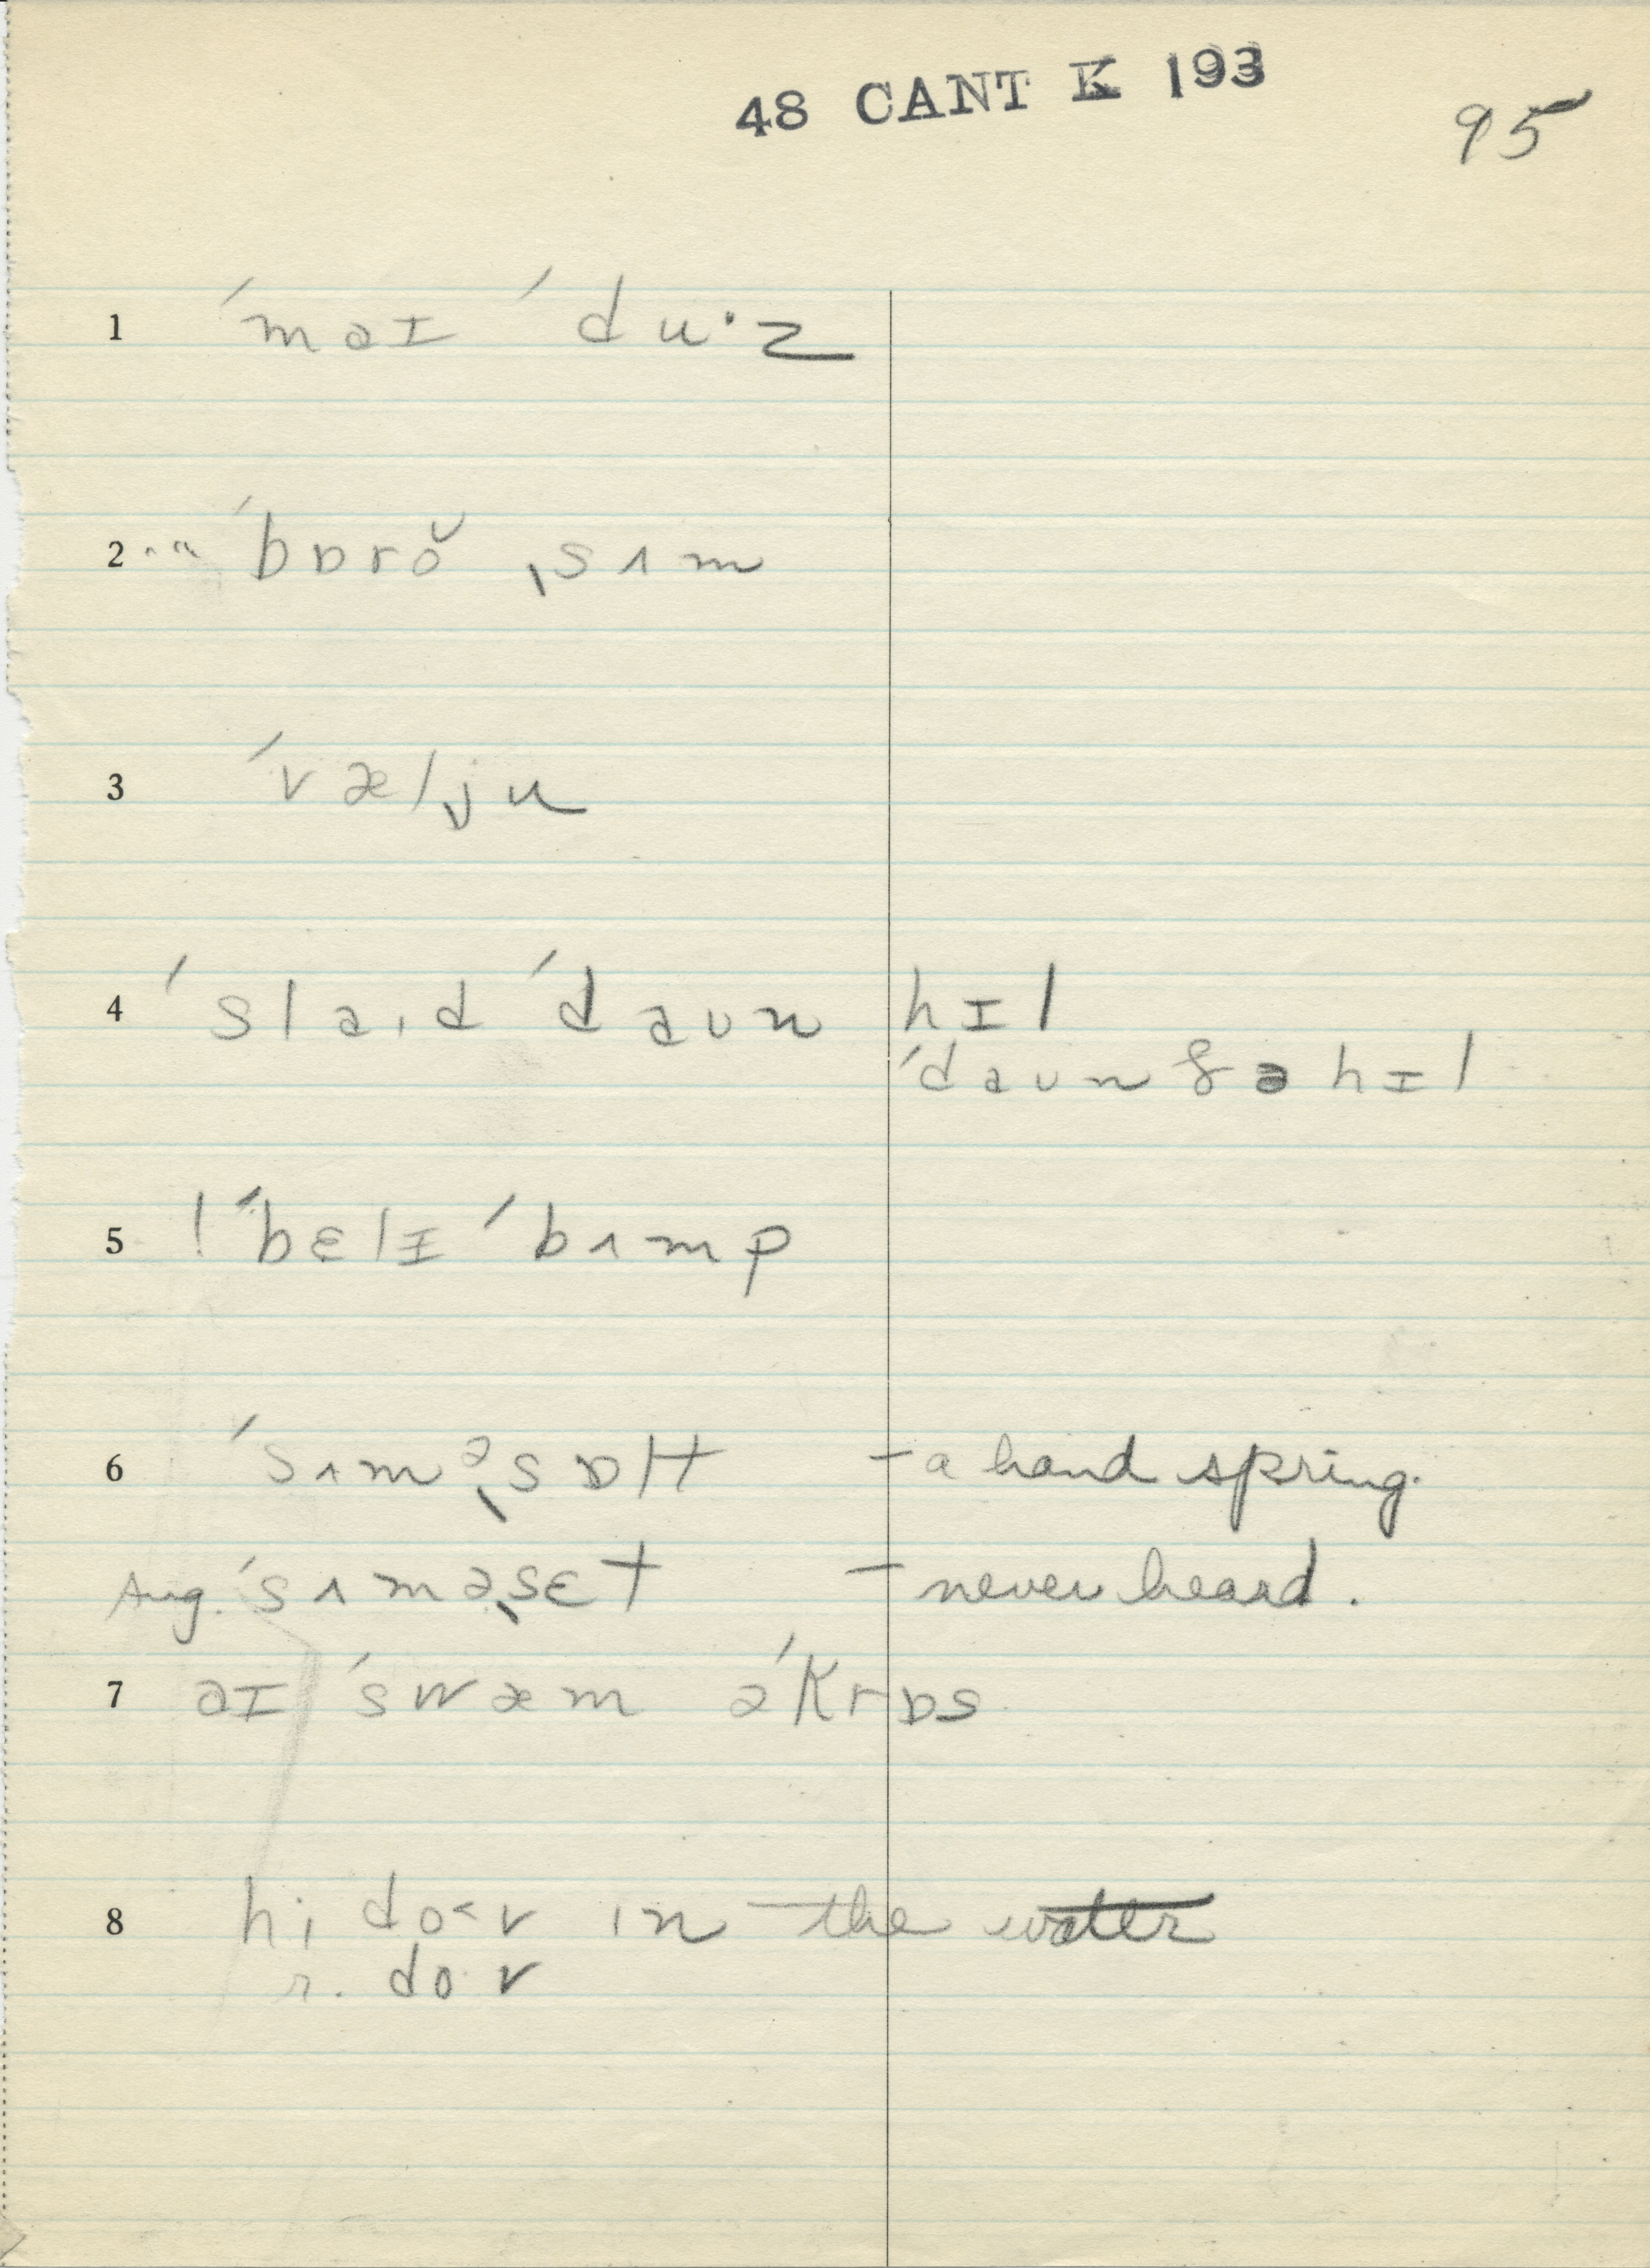 48 CANT K 193
95
1 ´maɪ ´du·z
2 ´bɒrŏ ˌsʌm
3 ´vælˌju
4 ´slaıd ´daʊn hɪl
´daʊn ðə hɪl
5 ! ´bɛlɪ ´bʌmp
6 ´sʌməˌsɒlt – a hand spring.
Aug. ´sʌməˌsɛt – never heard.
7 aɪ ´swæm ə´krɒs
8 hi do˂v ın the water
r. do·v